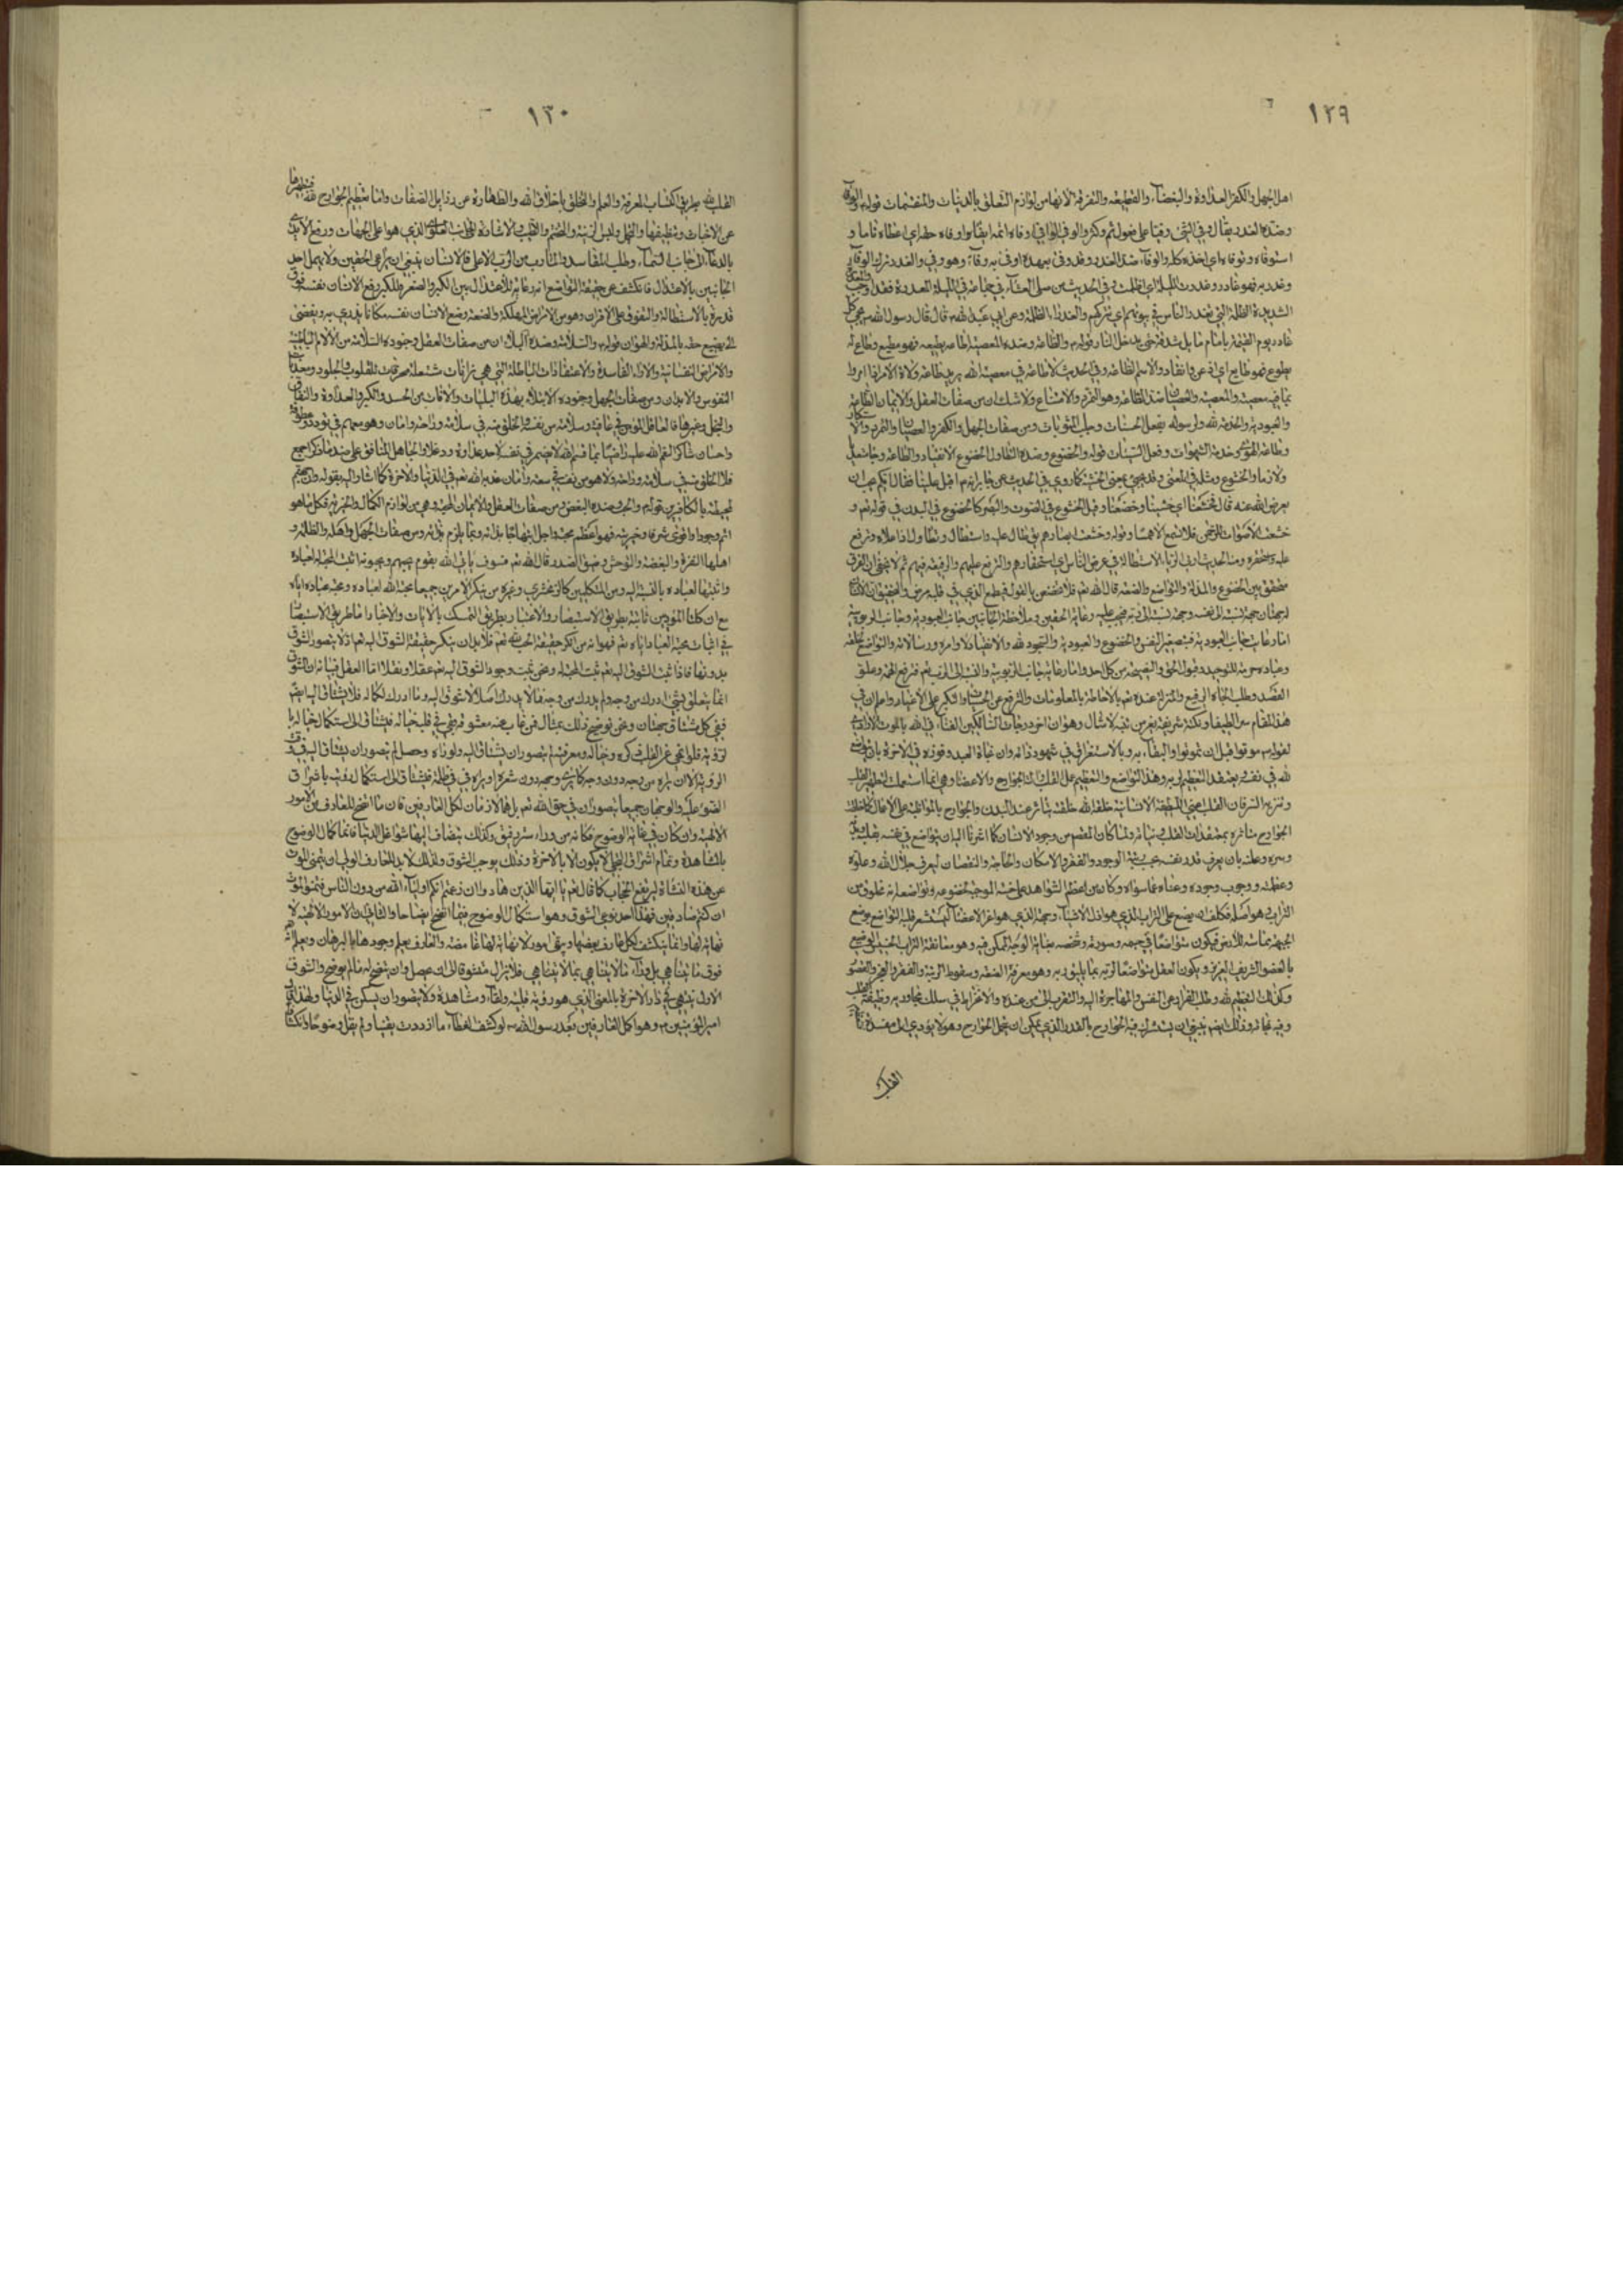 ١٢٩
اهل الجهل والكفر العداوة والبغضاء والقطيعة والتفرقة لانها من لوازم التعلق بالدنيات والمقتسمات قوله والوفاء
وضده الغدر يقال وفى الشئ وفيا على فعول اى تم وكثر والوفى الوافى واوفاه حقه اى اعطاه تاما و
استوفاه وتوفاه اى اخذه كله والوفاء ضد الغدر وقد وفى بعهده اوفى به وفاء وهو وفى والغدر ترك الوفاء
وغدر به فهو غادر وغدرت الليلة اى اظلمت وفى الحديث من صلى العشاء فى جماعة فى الليلة المغدرة فقد اوجب
الشديدة الظلمة التى تغدر الناس فى بيوتهم اى تتركهم والغدراء الظلمة وعن ابى عبد الله قال قال رسول الله يجئ كل
غادر يوم القيمة بامام مايل شدقه حتى يدخل النار قوله والطاعة وضده المعصية اطاعه يطيعه فهو مطيع وطاع له
يطوع فهو طايع اى اذعن وانقاد والاسم الطاعة وفى الحديث لا طاعة فى معصية الله يريد طاعة ولاة الامر اذا امروا
بما فيه معصية والمعصية والعصيان ضد الطاعة وهو التمرد والامتناع ولا شك ان من صفات العقل والايمان الطاعة
والعبودية والخدمة لله ولرسوله بفعل الحسنات وجلب المثوبات ومن صفات الجهل والكفر والعصيان والتمرد والاستكبار
وطاعة الهوى وخدمة الشهوات وفعل السيئات قوله والخضوع وضده التطاول الخضوع الانقياد والطاعة وجاء متعديا
ولازما والخشوع مثله فى المعنى وقد يجئ بمعنى الخشية كما روى فى الحديث عن جابر انه اقبل علينا فقال ايكم يحب ان
يعرض الله عنه قال فخشعنا اى خشينا وخضعنا وقيل الخشوع فى الصوت والبصر كالخضوع فى البدن فى قوله تعم و
خشعت الاصوات للرحمن فلا تسمع الا همسا وقوله وخشعت ابصارهم يقال عليه واستطال وتطاول اذا علاه وترفع
عليه ومنه الحديث اربى الربا الاستطالة فى عرض الناس اى استحقارهم والترفع عليهم والوقيعة فيهم ثم لا يخفى ان الفرق
متحقق بين الخضوع والمذلة والتواضع والضعة قال الله تعم فلا تخضعن بالقول فيطمع الذى فى قلبه مرض
امارعاية جانب العبودية فبتصغير النفس والخضوع والعبودية والسجود لله والانقياد لاوامره ورسالاته والتواضع لخلقه
وعباده حرمة للتوحيد وقبول الحق والنصيحة من كل احد واما رعاية جانب الربوبية والنسبة الى الرب تعم فبرفع الهمة وعلو
القصد وطلب الجاه الرفيع والمنزلة عنده تعم بالاحاطة بالمعلومات والترفع عن الخسايس والتكبر على الاغيار واعلم ان فى
هذا المقام سرا لطيفا ونكتة شريفة وهو ان اخر درجات السالكين الفناء فى الله بالموت الارادى
لقوله موتوا قبل ان تموتوا والبقاء به وبالاستغراق فى شهود ذاته وان نجاة العبد وفوزه فى الاخرة بان يتواضع
لله فى نفسه ويعتقد التعظيم لربه وهذا التواضع والتعظيم عمل القلب واما الجوارح والاعضاء وهى انما استعملت لتطهير القلب
وتنزيه السر فان القلب اعنى اللطيفة الانسانية خلقه الله خلقة يتأثر عند البدن والجوارح بالمواظبة على الاعمال كما خلقت
الجوارح متأثرة بمعتقدات القلب ونياته ولما كان المقصود من وجود الانسان كما اشرنا اليه ان يتواضع فى نفسه بعقله وقلبه
وسره وعلنه بان يعرف قدر نفسه بخسة رتبة الوجود والفقر والامكان والحاجة والنقصان ليعرف جلال الله وعلوه
وعظمته ووجوب وجوده وغناه عما سواه وكان من اعظم الشواهد على خسته الموجبة لخضوعه وتواضعه انه مخلوق من
التراب هو اصله فكلف ان يضع على التراب الذى هو اذل الاشياء وجهه الذى هو اعز الاعضاء ليستشعر قلبه التواضع بوضع
الجبهة مماسة للارض فيكون متواضعا فى جسمه وصورته وشخصه بغاية الوجه الممكن فيه وهو معانقة التراب الخسيس الوضيع
بالعضو الشريف العزيز ويكون العقل متواضعا لربه بما يليق به وهو معرفة الضعة وسقوط الرتبة والفقر والعجز والقصور
وكذلك لتعظيم لله وطلب الفرار عن النفس والمهاجرة اليه والتقرب الى من عنده والانخراط فى سلك مجاوريه وظيفة القلب
وفيه نجاته وذلك ايضا ينبغى ان يشترك فيه الجوارح بالقدر الذى يمكن ان تحمل الجوارح وهو لا يؤدى الى مفسدة
القلب
١٣٠
القلب لله بطريق اكتساب المعرفة والعلم والتخلق باخلاق الله والطهارة عن رذايل الصفات واما تعظيم الجوارح لله فبتطهيرها
عن الاخباث وتنظيفها والغسل ولبس الزينة والاشارة الى جانب العلو الذى هو اعلى الجهات ورفع الايدى
بالدعاء الى جانب السماء وطلب المقاصد والمآرب من الرب الاعلى فالانسان ينبغى ان يراعى الحقين ولا يهمل احد
الجانبين بالاعتدال فانكشف عن حقيقة التواضع انه رعاية للاعتدال بين الكبر والصغر والتكبر رفع الانسان نفسه فوق
قدره بالاستطالة والتفوق على الاقران وهو من الامراض المهلكة والضعة وضع الانسان نفسه مكانا يزرى به ويفضى
الى تضييع حقه بالمذلة والهوان قوله والسلامة وضده البلاء ان من صفات العقل وجنوده السلامة من الالام الباطنة
والامراض النفسانية والاراء الفاسدة والاعتقادات الباطلة التى هى نيرانات مشتعلة محرقات للقلوب والجلود ومعذبات
النفوس والابدان ومن صفات الجهل وجنوده الابتلاء بهذه البليات والافات من الحسد والكبر والعداوة والنفاق
والبخل وغيرها فالعاقل المؤمن فى عافية وسلامة من نفسه والخلق منه فى سلامة وراحة وامان وهو معهم فى تودد وعطوفة
واحسان شاكرا لنعم الله عليه راضيا بما قسم الله لا يضمر فى نفسه لاحد عداوة ودغلا والجاهل المنافق على ضد ما ذكر اجمع
فلا الخلق منه فى سلامة وراحة ولا هو من نفسه فى سعة وامان عذبه الله تعم فى الدنيا والاخرة كما اشار اليه بقوله وان جهنم
لمحيطة بالكافرين قوله والحب وضده البغض من صفات العقل والايمان المحبة وهى من لوازم الكمال والخيرية فكل ما هو
اتم وجودا واقوى شرفا وخيرية فهو اعظم محبة واجل ابتهاجا بذاته وبما يلزم ذاته ومن صفات الجهل واهله والظلمة و
اهلها النفرة والبغضة والتوحش وضيق الصدر قال الله تعم فسوف يأتى الله بقوم يحبهم ويحبونه اثبت المحبة لعباده
واثبتها لعباده بالنسبة اليه ومن المتكلمين كالزمخشرى وغيره من ينكر الامرين جميعا محبة الله لعباده ومحبة عباده اياه
مع ان كلتا المؤيدين ثابتة بطريق الاستبصار والاعتبار بطريق التمسك بالايات والاخبار اما طريق الاستبصار
فى اثبات محبة العباد اياه تعم فهو انه من انكر حقيقة الحب لله تعم فلا بد ان ينكر حقيقة الشوق اليه تعم اذ لا يتصور الشوق
بدونها فاذا ثبت الشوق اليه تعم ثبت المحبة له ونحن نثبت وجود الشوق اليه تعم عقلا ونقلا اما العقل فبيانه ان الشوق
انما يتعلق بشئ ادرك من وجه ولم يدرك من وجه فما لا يدرك اصلا لا يشتاق اليه وما ادرك بكماله فلا يشتاق اليه ايضا
ففى كل مشتاق جهتان ونحن نوضح ذلك بمثال فمن غاب عنه معشوقه وبقى فى قلبه خياله فيشتاق الى استكمال خياله بالـ
رؤية فلو انمحى عن القلب ذكره وخياله ومعرفته لم يتصور ان يشتاق اليه ولو رآه وحصل لم يتصور ان يشتاق اليه فى وقت
الرؤية الا ان يراه من وجه دون وجه كما يرى وجهه دون شعره او يراه فى ظلمة فيشتاق الى استكمال رؤيته باشراق
الضوء عليه والوجهان جميعا يتصوران فى حق الله تعم بل هما لازمان لكل العارفين فان ما اتضح للعارف من الامور
الالهية وان كان فى غاية الوضوح فكانه من وراء ستر رقيق وكذلك ينضاف اليها شواغل الدنيا فانما كمال الوضوح
بالمشاهدة وتمام اشراق التجلى لا يكون الا بالاخرة وذلك يوجب الشوق ولذلك لا بد للعارف الولى ان يتمنى الموت
عن هذه النشأة ليرتفع الحجاب كما قال تعم يا ايها الذين هادوا ان زعمتم انكم اولياء لله من دون الناس فتمنوا الموت
ان كنتم صادقين فهذا احد نوعى الشوق وهو استكمال الوضوح فيما اتضح ايضاحا والثانى ان الامور الالهية لا
نهاية لها وانما ينكشف لكل عارف بعضها ويبقى امور لا نهاية لها غامضة والعارف يعلم وجودها بالبرهان ويعلم انه
فوق ما يتناهى بما لا يتناهى فلا يزال متشوقا الى ان يحصل وان يتضح له ما لم يتضح والشوق
الاول ينتهى فى دار الاخرة بالمعنى الذى هو رؤية قلبية ولقاء ومشاهدة ولا يتصور ان يسكن فى الدنيا ولهذا قال
امير المؤمنين وهو اكمل العارفين بعد رسول الله لو كشف الغطاء ما ازددت يقينا ولم يقل وضوحا وانكشافا